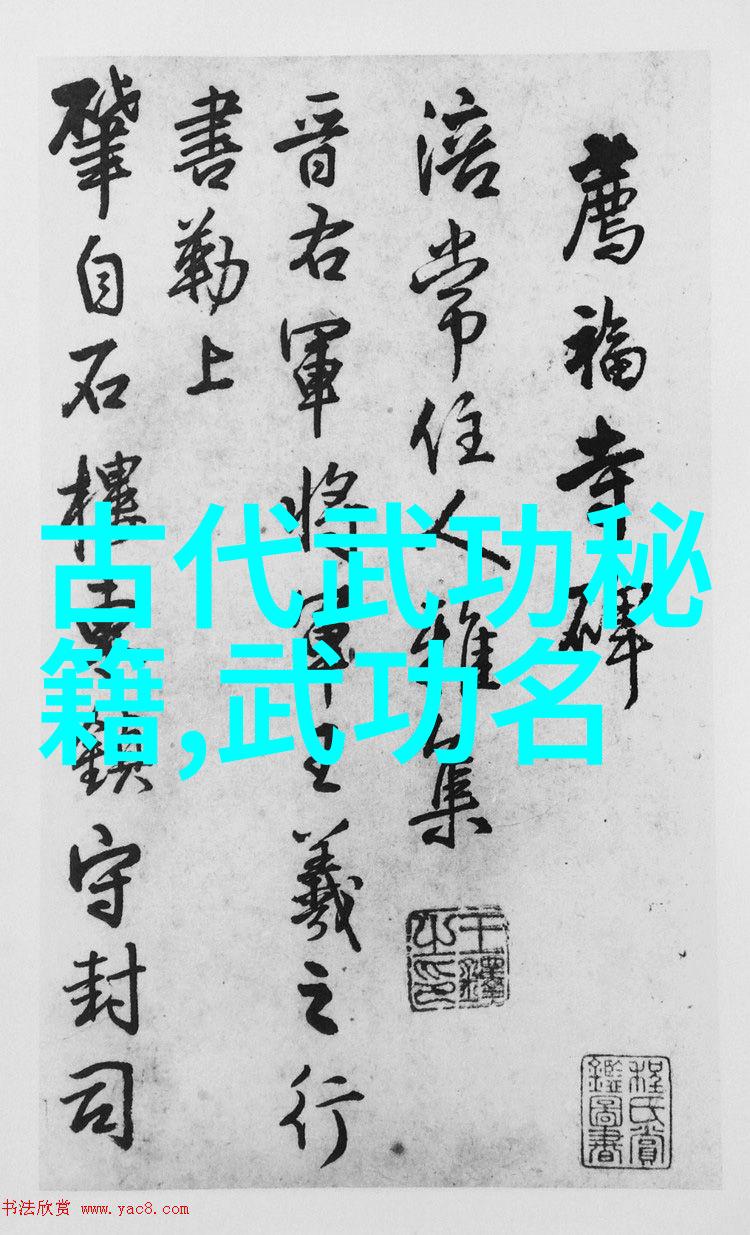 薦福寺碑
涪常住人雅集
晉右軍將軍王羲之行
書勒上
肇自石樓鎮守封司
古代武功秘
籍,武功名
王鐸之印
程氏賞鑑圖書
书法欣赏 www.yac8.com